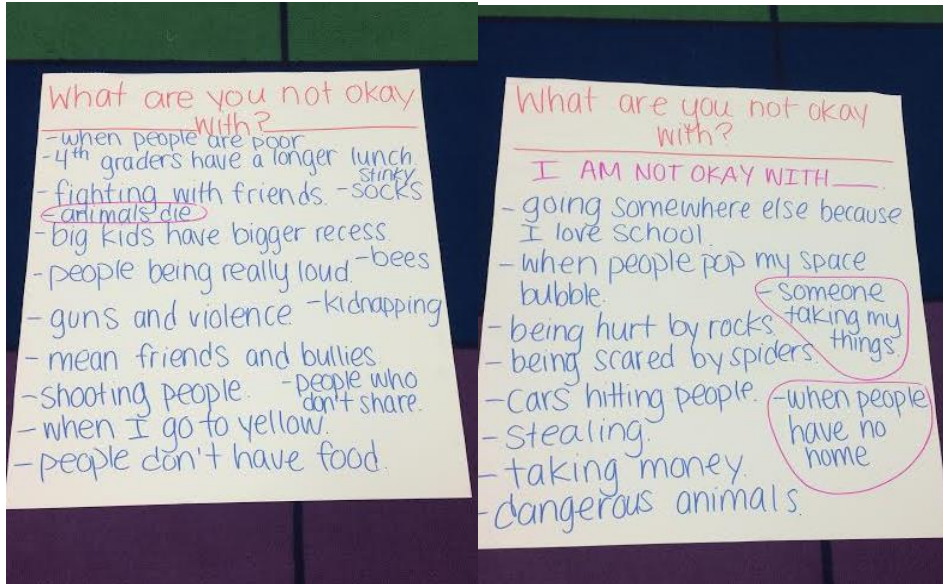 What are you not okay
with?
- when people are poor
- 4th graders have a longer lunch
- fighting with friends. - stinky
socks
- animals die
- big kids have bigger recess
- people being really loud. - bees
- guns and violence. - kidnapping
- mean friends and bullies
- shooting people. - people who
don't share.
- when I go to yellow.
- people don't have food.
What are you not okay
with?
I AM NOT OKAY WITH___.
- going somewhere else because
I love school.
- when people pop my space
bubble.
- someone
taking my
things.
- being hurt by rocks.
- being scared by spiders.
- cars hitting people.
- when people
have no
home
- stealing.
- taking money.
- dangerous animals.